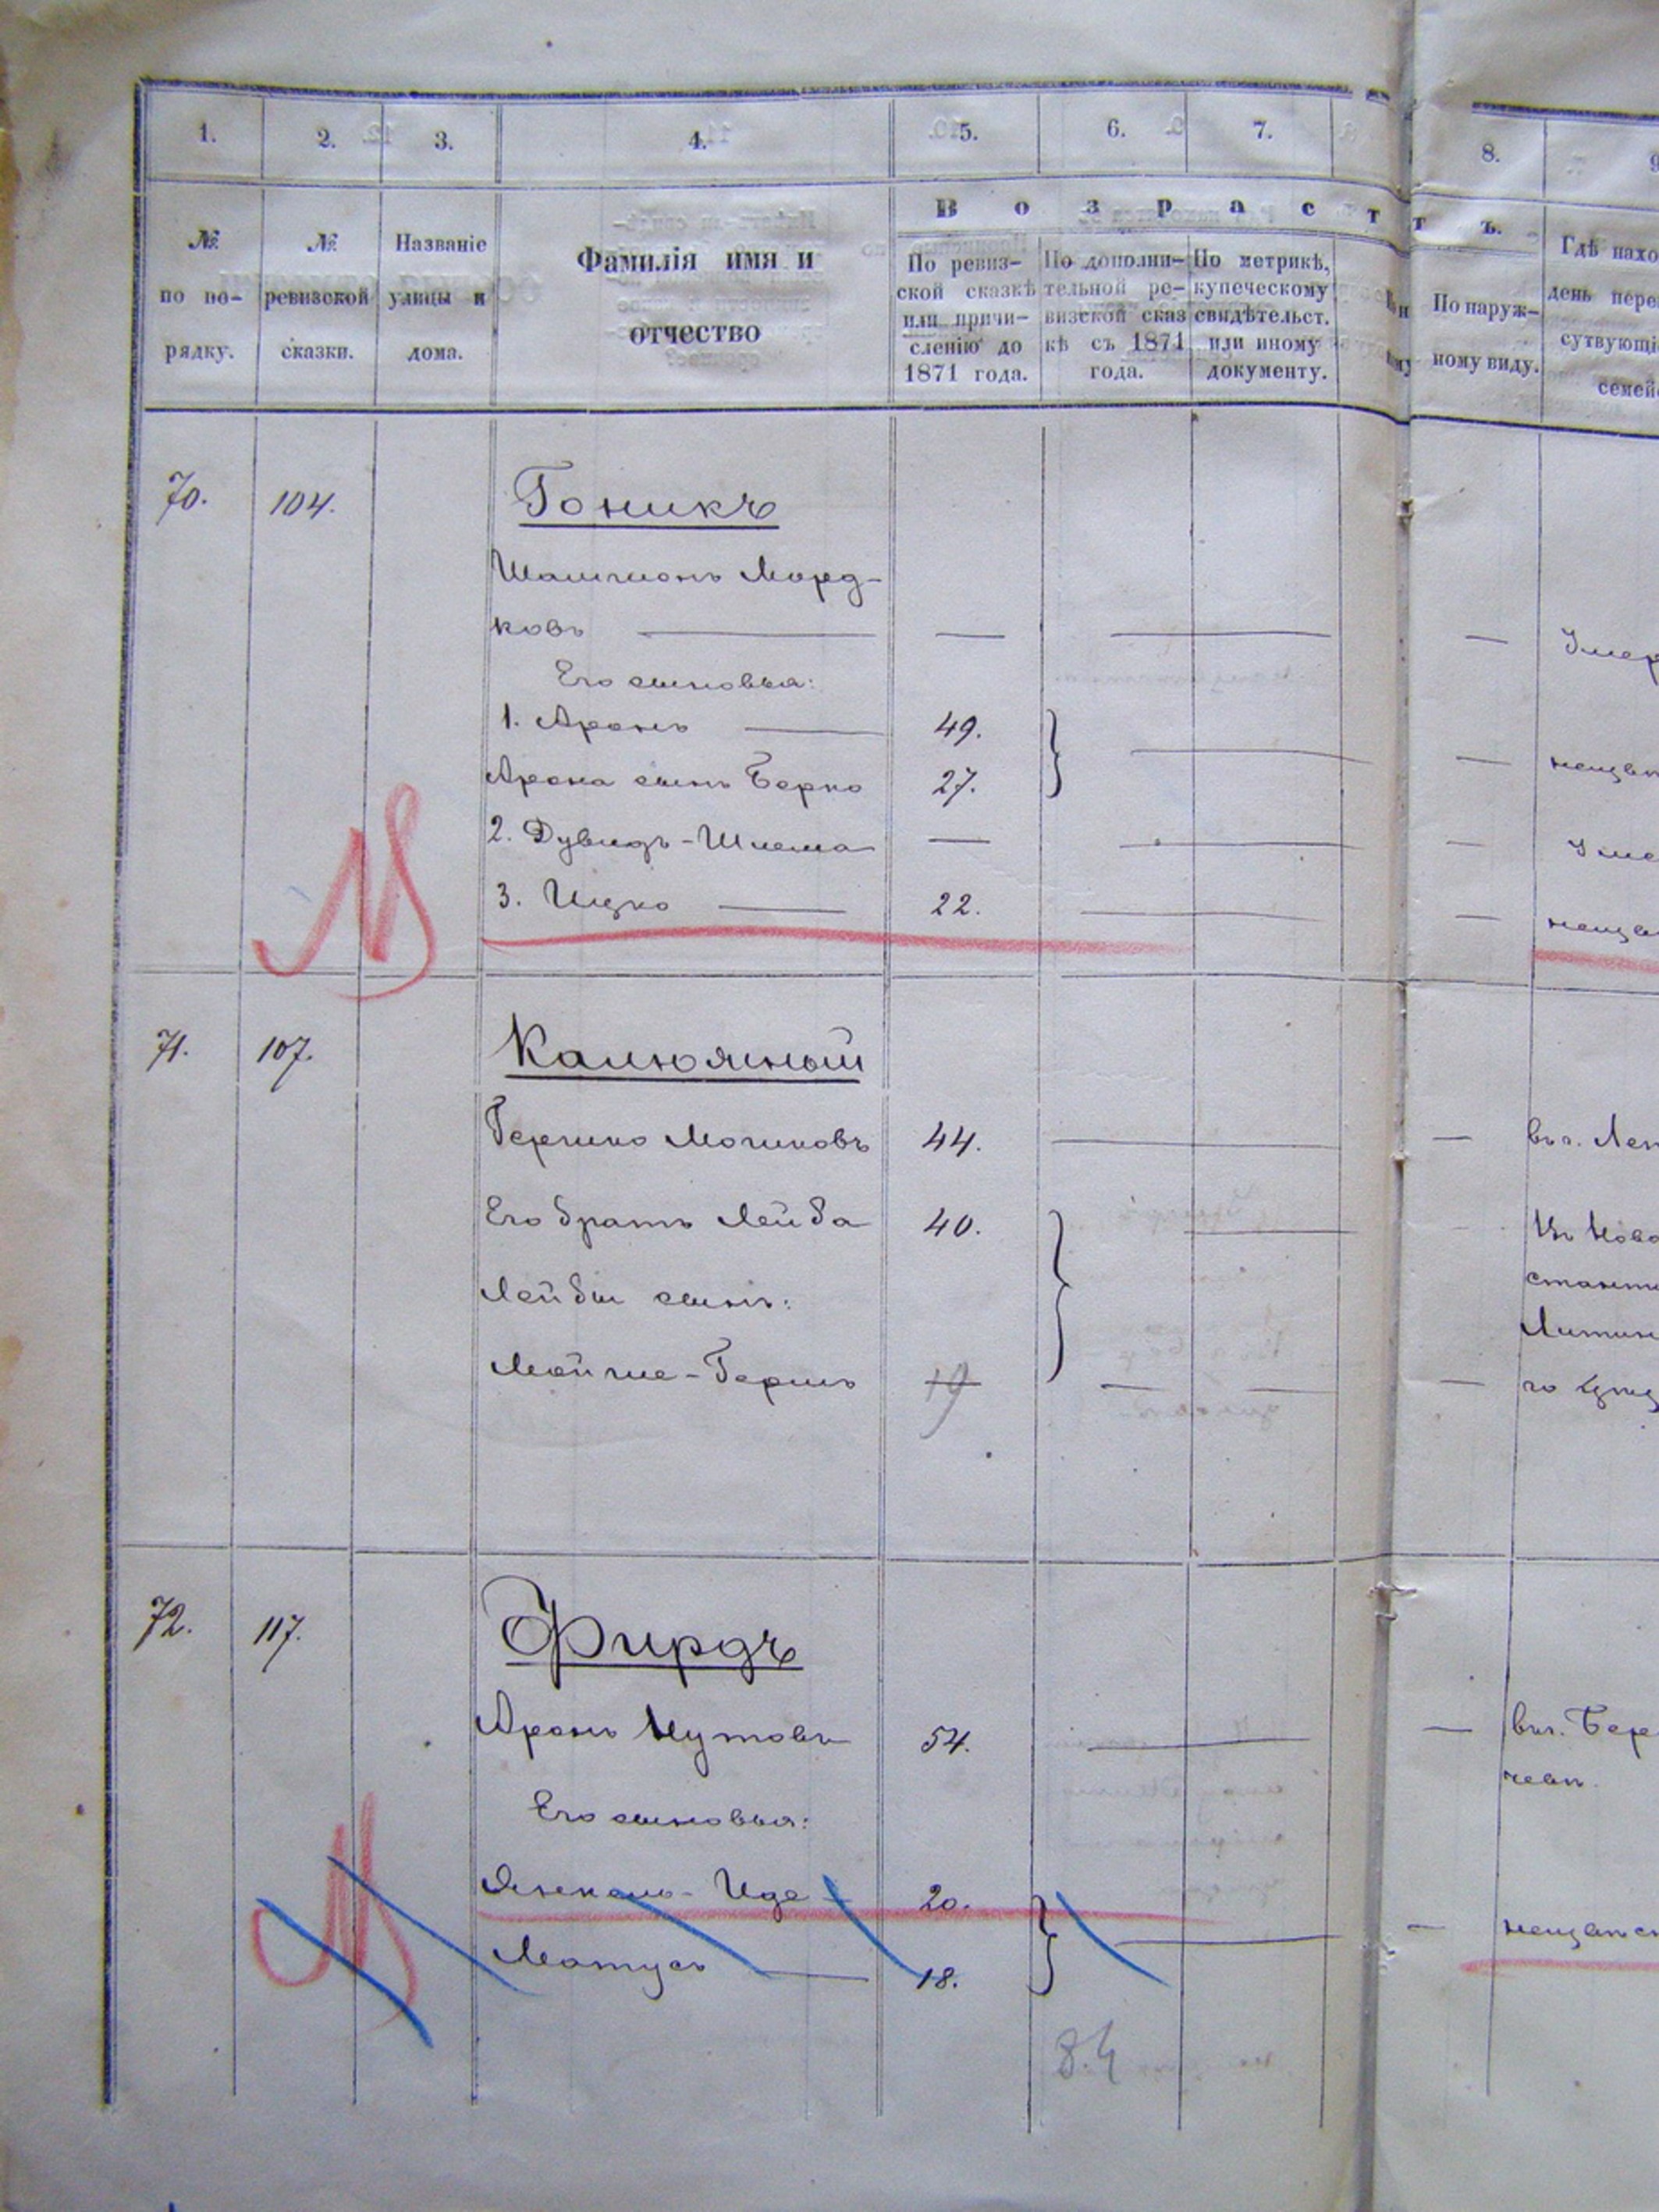 1. 2. 3. 4. 5. 6. 7. 8. 9
№ по по- рядку.
№ ревизской сказки.
Названіе улицы и дома.
Фамилія имя и
отчество
Возрастъ.
По ревиз-
ской сказкѣ
или причи-
сленію до
1871 года.
По дополни-
тельной ре-
визской сказ
кѣ съ 1871
года.
По метрикѣ,
купеческому
свидѣтельст.
или иному
документу.
По наруж-
ному виду.
Гдѣ нахо
день пере
сутвующі
семей
70. 104. Гоникъ
Шашмонъ Морд-
ковъ — — — — Умер
Его сыновья:
1. Аронъ — 49.
Арона сынъ Берко 27. — — неизвѣ
2. Дувидъ-Шлема — — — Уме
3. Ицко — 22. — — неизв
71. 107. Калюжный
Гершко Мошковъ 44. — — въ г. Лет
Его братъ Лейба 40. — Въ Ново
Лейбы сынъ: стант
Литин
Мойше-Гершъ 19 — — — го
72. 117. Фирдъ
Аронъ Нутовъ 54. — — въ г. Бер
чевѣ.
Его сыновья:
Янкель-Иде — 20.
— — неизвѣст
Матусъ — 18.
84